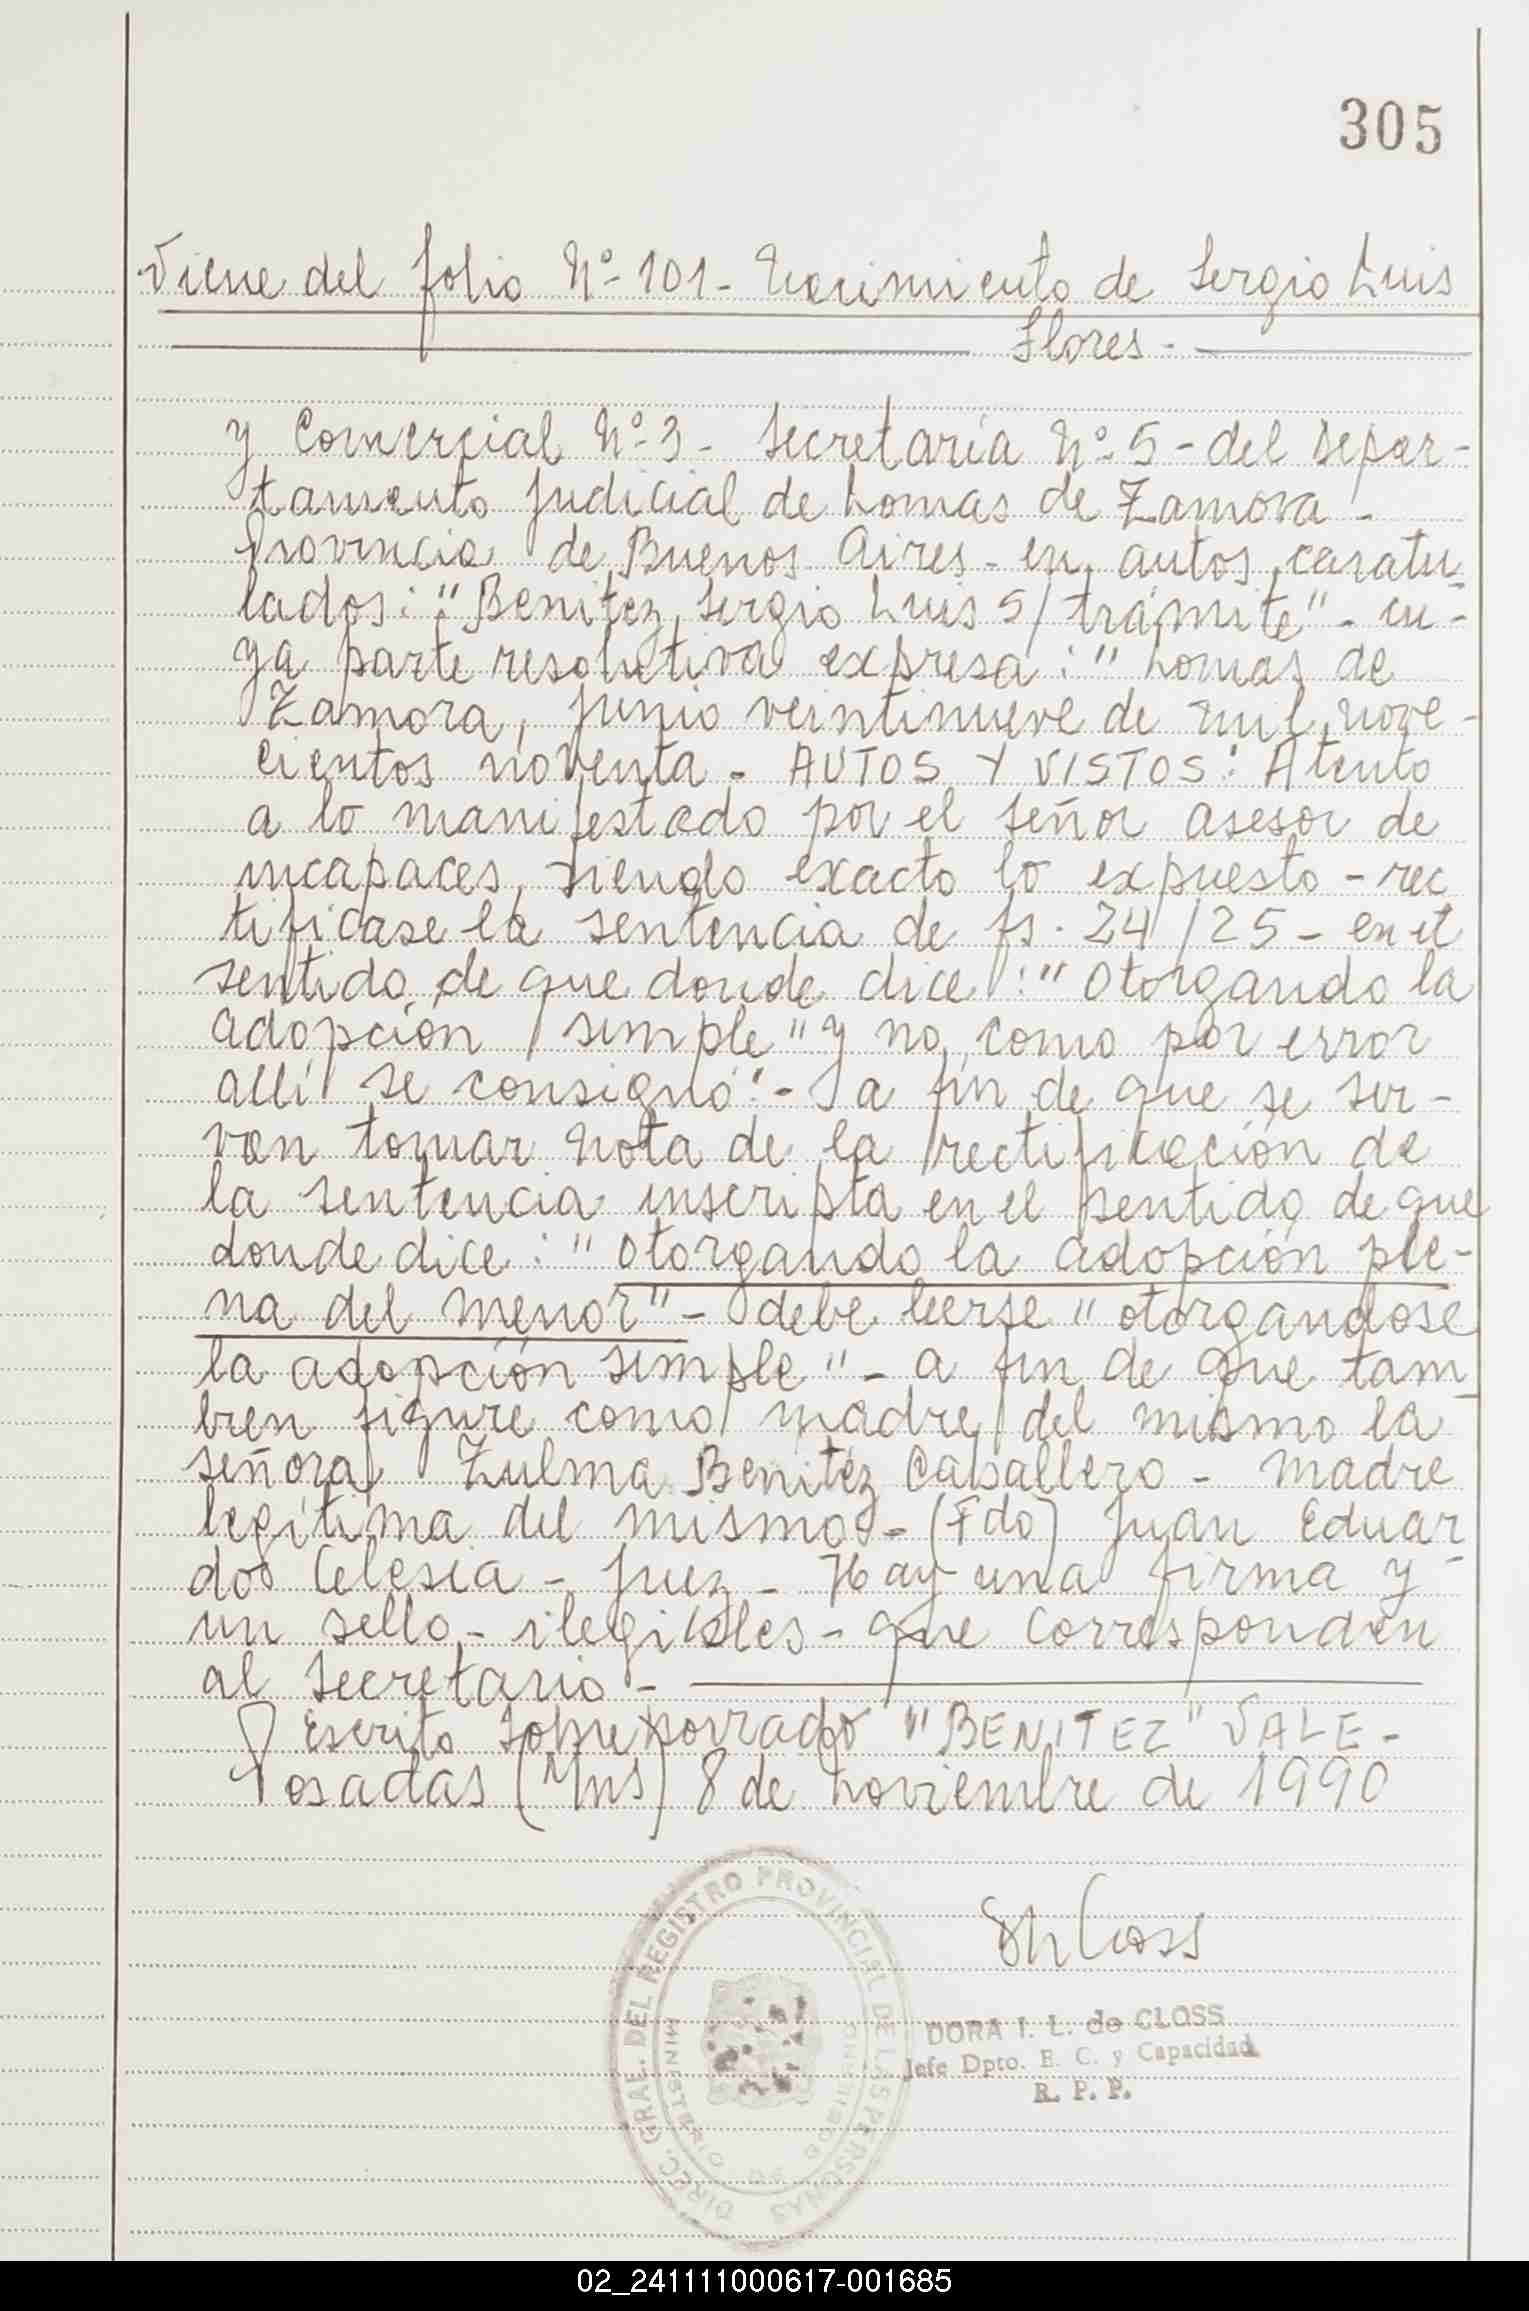 305
Viene del folio Nº 101 - Nacimiento de Sergio Luis
Flores -
y Comercial Nº 3 - Secretaría Nº 5 - del Depar-
tamento Judicial de Lomas de Zamora -
Provincia de Buenos Aires - en autos caratu-
lados: "Benitez, Sergio Luis s/ trámite" - cu-
ya parte resolutiva expresa: "Lomas de
Zamora, junio veintinueve de mil nove-
cientos noventa - AUTOS Y VISTOS: Atento
a lo manifestado por el señor asesor de
incapaces, siendo exacto lo expuesto - rec
tificase la sentencia de fs. 24/25 - en el
sentido de que donde dice: "Otorgando la
adopción simple" y no, como por error
allí se consignó" - a fin de que se sir-
van tomar nota de la rectificación de
la sentencia inscripta en el sentido de que
donde dice: "otorgando la adopción ple-
na del menor" - debe leerse "otorgandose
la adopción simple" - a fin de que tam-
bien figure como madre del mismo la
señora Zulma Benitéz Caballero - madre
legítima del mismo - (Fdo) Juan Eduar-
do Celesia - Juez - Hay una firma y
un sello - ilegibles - que corresponden
al secretario -
Escrito sobreborrado "BENITEZ" VALE -
Posadas (Mns) 8 de noviembre de 1990
DIREC. GRAL. DEL REGISTRO PROVINCIAL DE LAS PERSONAS
MINISTERIO DE GOBIERNO
Closs
DORA I. L. de CLOSS
Jefe Dpto. E. C. y Capacidad
R. P. P.
02_241111000617-001685